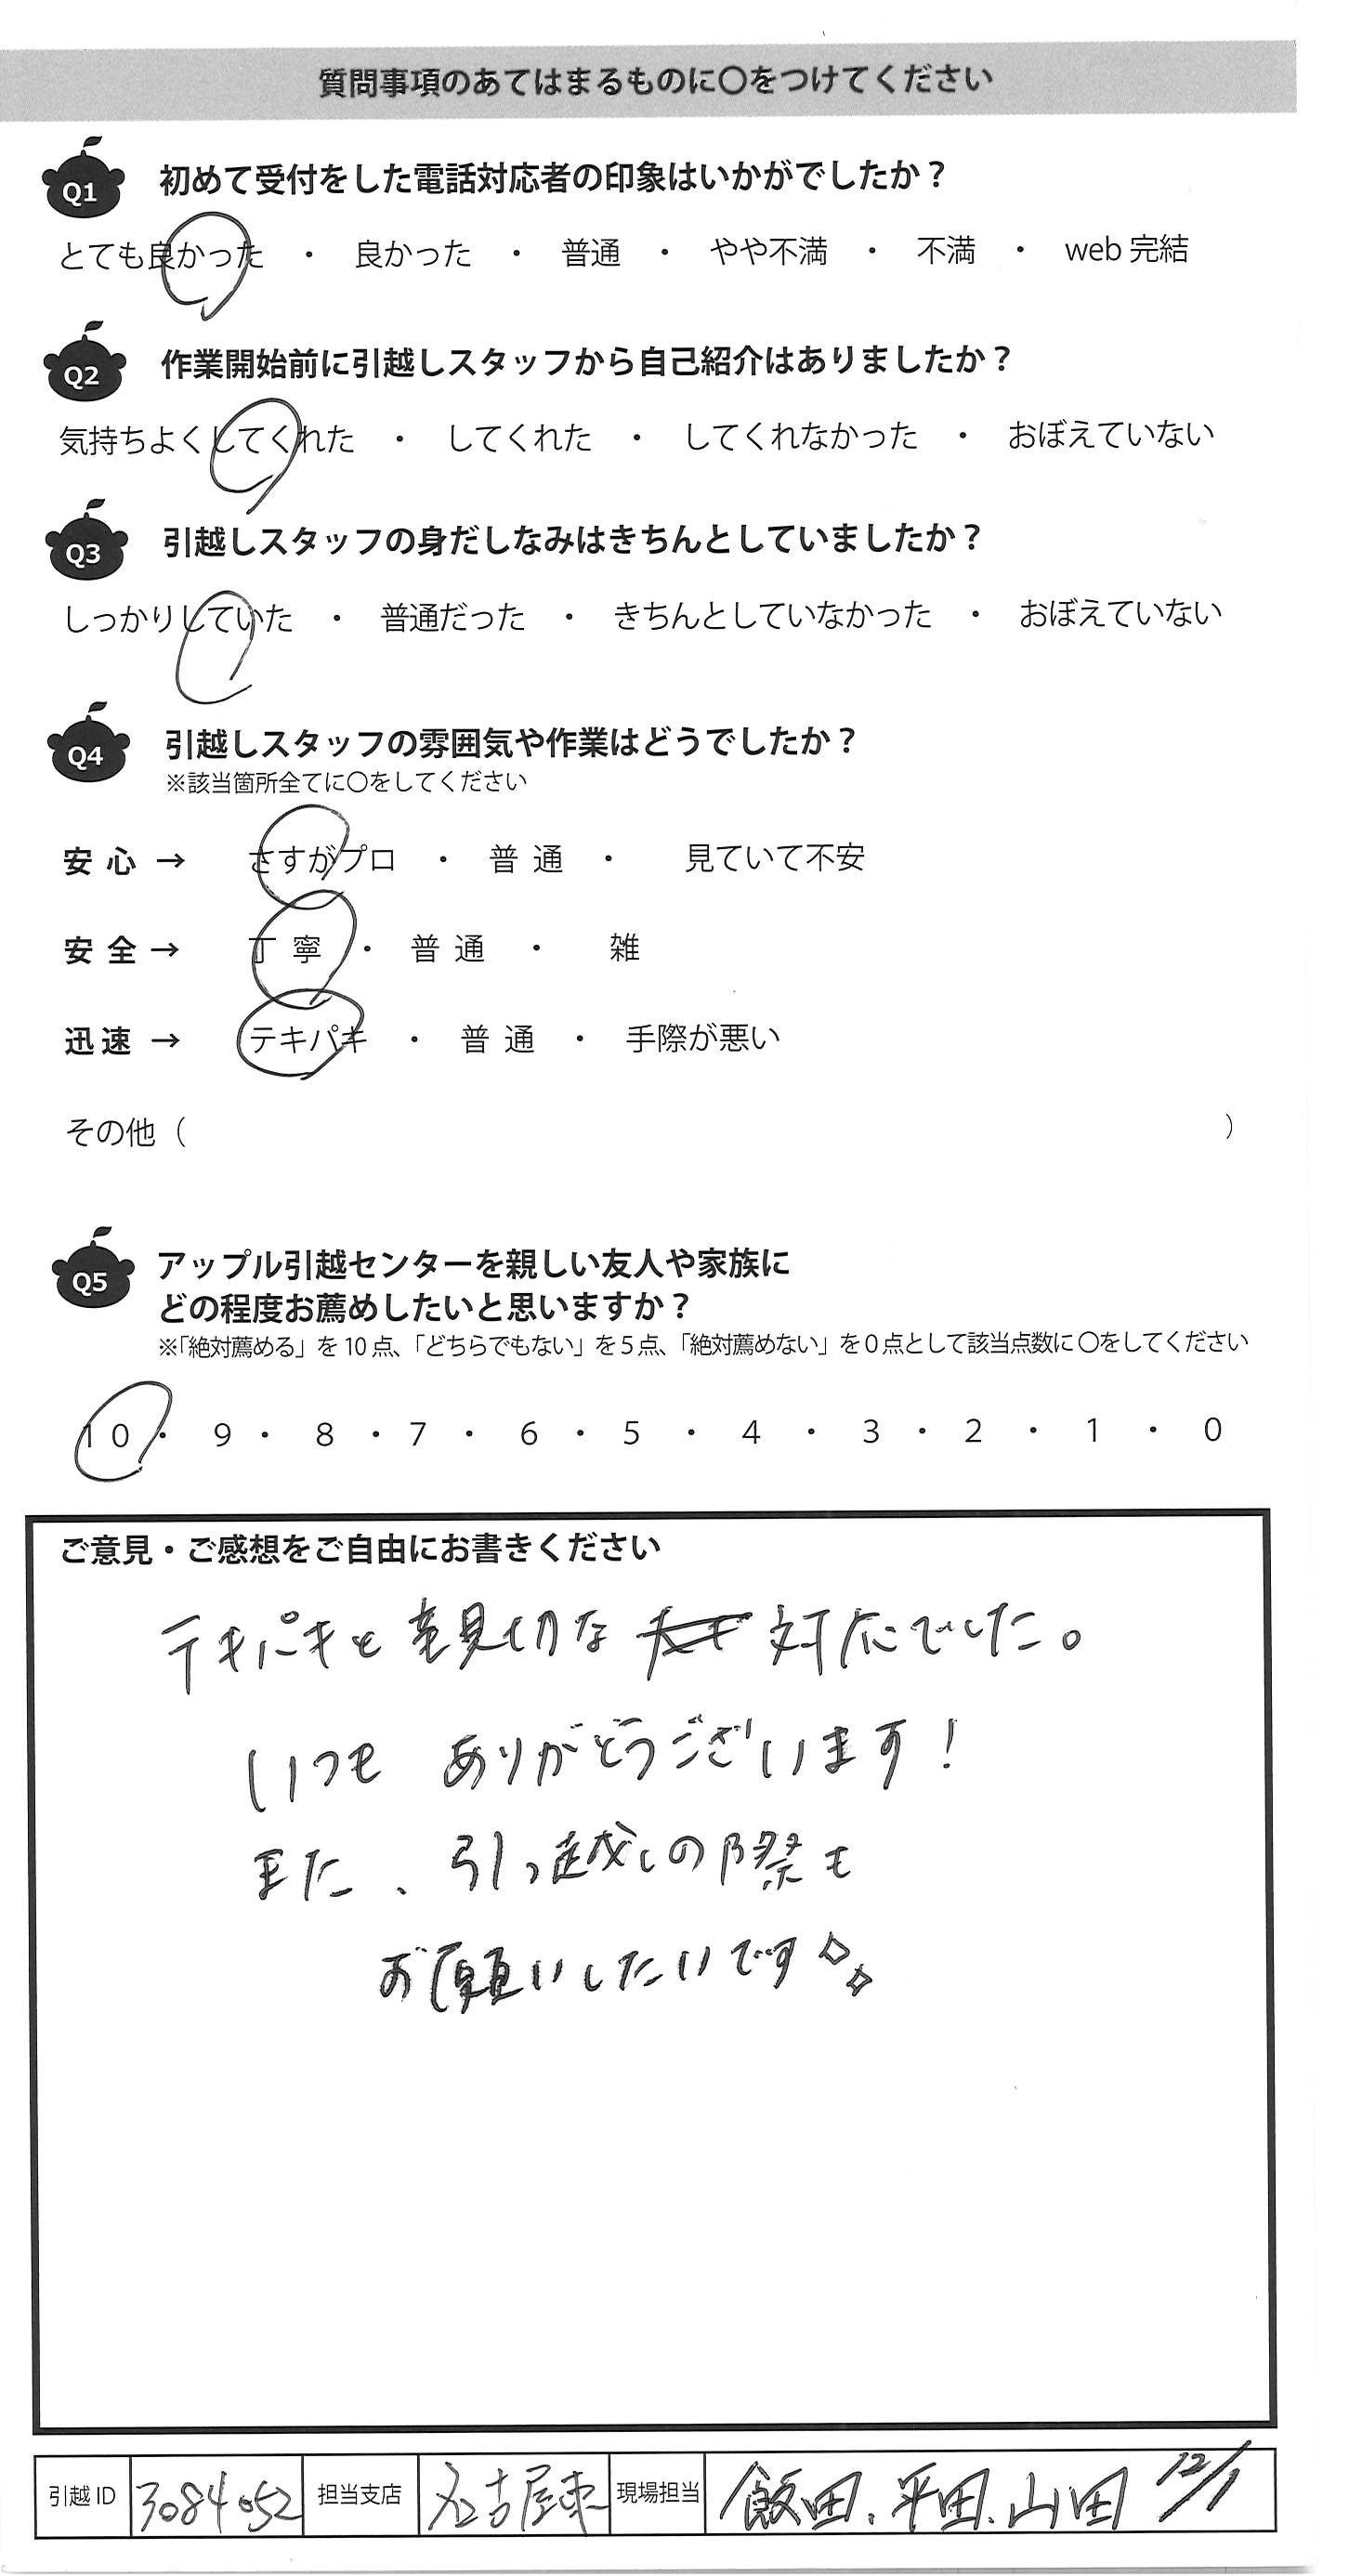 質問事項のあてはまるものに〇をつけてください
Q1 初めて受付をした電話対応者の印象はいかがでしたか？
とても良かった ・ 良かった ・ 普通 ・ やや不満 ・ 不満 ・ web 完結
Q2 作業開始前に引越しスタッフから自己紹介はありましたか？
気持ちよくしてくれた ・ してくれた ・ してくれなかった ・ おぼえていない
Q3 引越しスタッフの身だしなみはきちんとしていましたか？
しっかりしていた ・ 普通だった ・ きちんとしていなかった ・ おぼえていない
Q4 引越しスタッフの雰囲気や作業はどうでしたか？
※該当箇所全てに〇をしてください
安心 → さすがプロ ・ 普通 ・ 見ていて不安
安全 → 丁寧 ・ 普通 ・ 雑
迅速 → テキパキ ・ 普通 ・ 手際が悪い
その他（ ）
Q5 アップル引越センターを親しい友人や家族に
どの程度お薦めしたいと思いますか？
※「絶対薦める」を 10 点、「どちらでもない」を 5 点、「絶対薦めない」を 0 点として該当点数に 〇をしてください
10 ・ 9 ・ 8 ・ 7 ・ 6 ・ 5 ・ 4 ・ 3 ・ 2 ・ 1 ・ 0
ご意見・ご感想をご自由にお書きください
テキパキと親切な対応でした。
いつも ありがとうございます！
また、引っ越しの際も
お願いしたいです
引越 ID 3084052 担当支店 名古屋東 現場担当 飯田、平田、山田 12/1